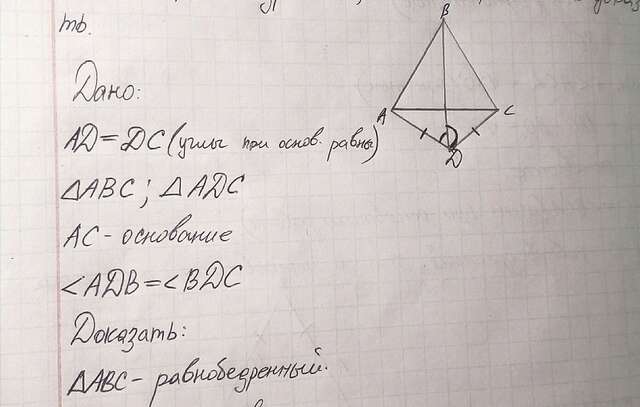 ть.
Дано:
AD=DC (углы при основ. равны)
△ABC; △ADC
AC - основание
<ADB=<BDC
Доказать:
△ABC - равнобедренный.
B
A
C
D